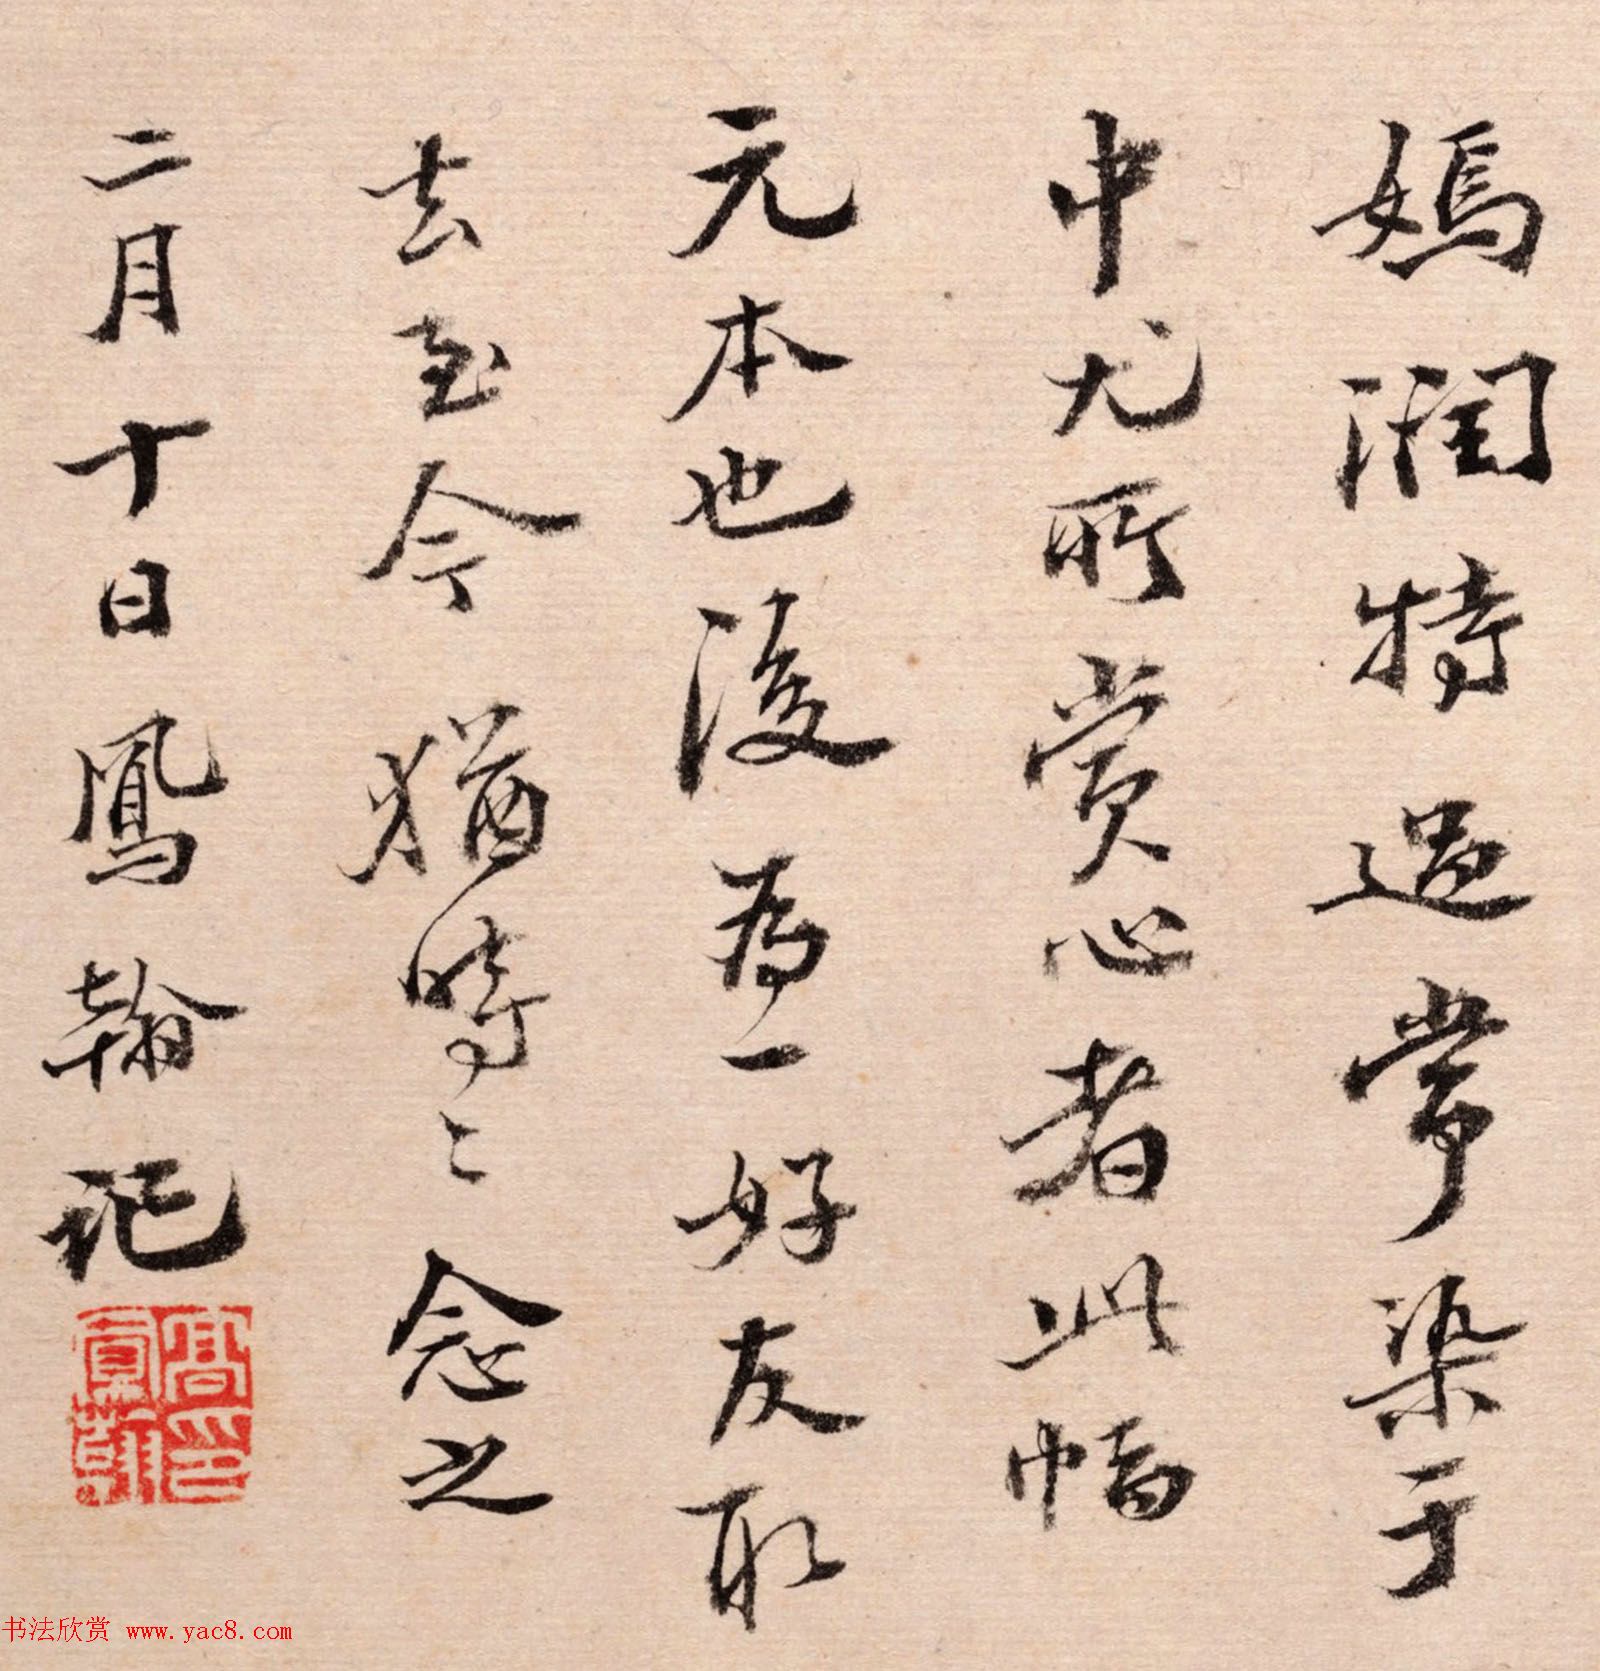 嫣潤特過常染于
中尤所賞心者此幅
元本也後為一好友取
去至今猶時〻念之
二月十日鳳翰記
高鳳翰印
书法欣赏 www.yac8.com